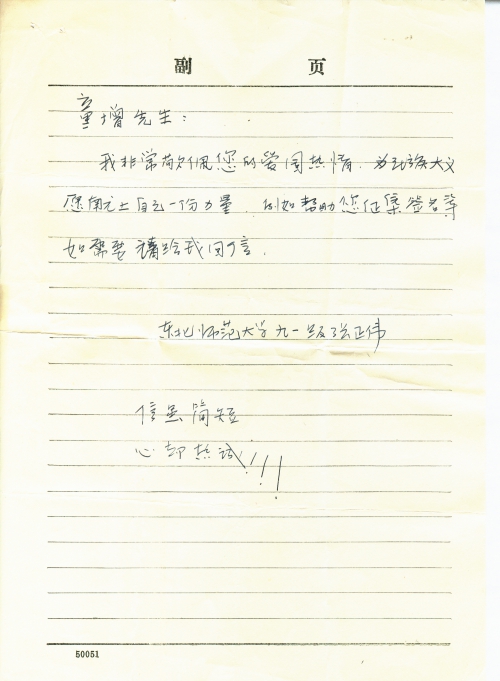 副 页
童增先生：
我非常钦佩您的爱国热情，为民族大义
愿献上自己一份力量，例如帮助您征集签名等
如需要請给我回信．
东北师范大学九一级张正伟
信虽简短
心却热诚！！！
50051